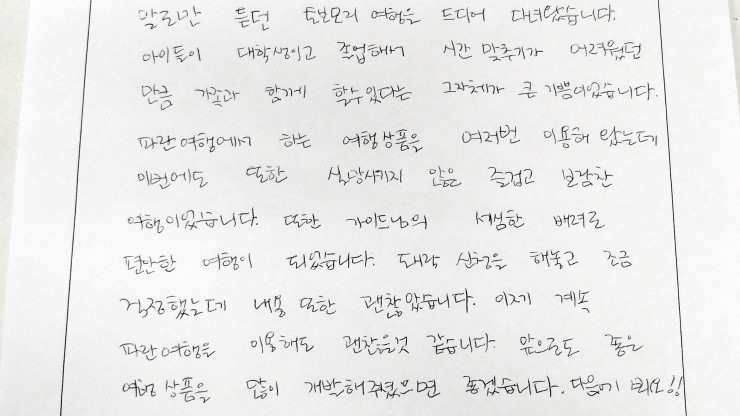 말로만 듣던 토보모리 여행을 드디어 다녀왔습니다.
아이들이 대학생이고 졸업해서 시간 맞추기가 어려웠던
만큼 가족과 함께 할수있다는 그자체가 큰 기쁨이었습니다.
파란여행에서 하는 여행상품을 여러번 이용해 왔는데
매번에도 또한 실망시키지 않은 즐겁고 보람찬
여행이었습니다. 또한 가이드님의 세심한 배려로
편안한 여행이 되었습니다. 도시락 신청을 해놓고 조금
걱정했는데 내용 또한 괜찮았습니다. 이제 계속
파란여행을 이용해도 괜찮을것 같습니다. 앞으로도 좋은
여행 상품을 많이 개발해주셨으면 좋겠습니다. 다음에 봐요!!